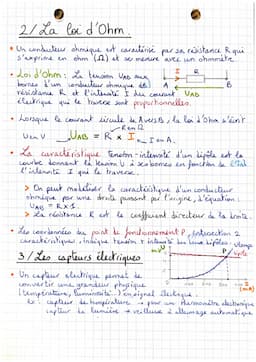 2/ La loi d'Ohm.
• Un conducteur ohmique est caractérisé par sa résistance R qui
s'exprime en ohm (Ω) et se mesure avec un ohmmètre.
• Loi d'Ohm : La tension UAB aux
bornes d'un conducteur ohmique de
résistance R et l'intensité I du courant
électrique qui le traverse sont proportionnelles.
A I R B
UAB
• Lorsque le courant circule de A vers B, la loi d'Ohm s'écrit
R en Ω
U en V UAB = R x I I en A.
• La caractéristique tension-intensité d'un dipôle est la
courbe donnant la tension U à ses bornes en fonction de
l'intensité I qui le traverse.
> On peut modéliser la caractéristique d'un conducteur
ohmique par une droite passant par l'origine, d'équation :
UAB = R x I.
> La résistance R est le coefficient directeur de la droite.
• Les coordonnées du point de fonctionnement P, intersection 2
caractéristiques, indique tension et intensité des deux dipôles
3/ Les capteurs électriques
• Un capteur électrique permet de
convertir une grandeur physique
(température, luminosité...) en signal électrique.
Ex : capteur de température → pour un thermomètre électronique
capteur de lumière → veilleuse à allumage automatique